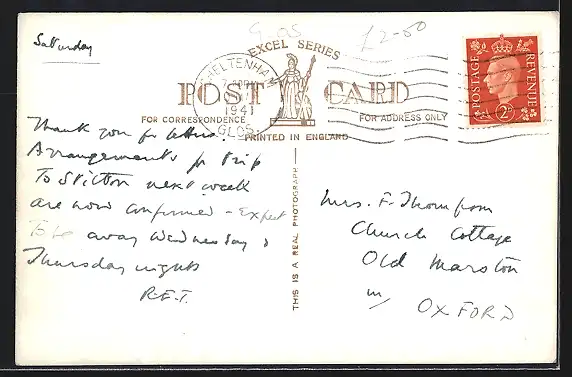 Saturday
GLOS
£2-00
EXCEL SERIES
CHELTENHAM
1941
GLOS.
POST CARD
FOR CORRESPONDENCE
FOR ADDRESS ONLY
PRINTED IN ENGLAND
POSTAGE
REVENUE
2D
THIS IS A REAL PHOTOGRAPH
Thank you for letter.
Arrangements for trip
To Stilton next week
are now confirmed - Expect
To be away Wednesday &
Thursday nights
R.F.T.
Mrs. F. Thompson
Church Cottage
Old Marston
OXFORD